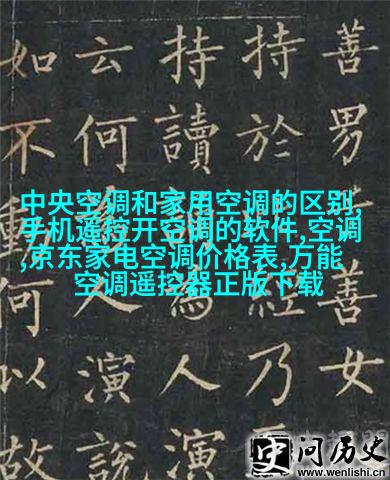 善男善女
持於經乃
持讀人演
云何人演說
如不動何以故
中央空调和家用空调的区别,
手机遥控开空调的软件,空调
,京东家电空调价格表,万能
空调遥控器正版下载
史问历史
www.wenlishi.cn